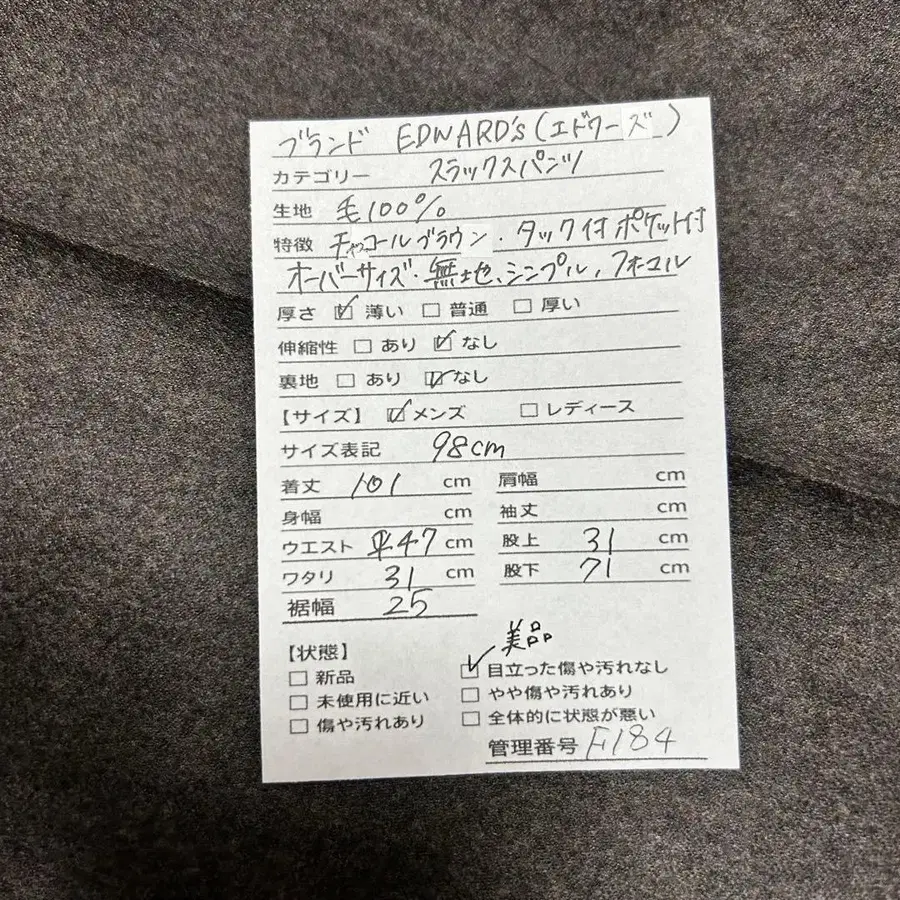 ブランド EDWARD's(エドワーズ)
カテゴリー スラックスパンツ
生地 毛100%
特徴 チャコールブラウン・タック付 ポケット付
オーバーサイズ・無地、シンプル、フォーマル
厚さ ☑ 薄い □ 普通 □ 厚い
伸縮性 □ あり ☑ なし
裏地 □ あり ☑ なし
【サイズ】 ☑ メンズ □ レディース
サイズ表記 98cm
着丈 101 cm 肩幅 cm
身幅 cm 袖丈 cm
ウエスト 平47 cm 股上 31 cm
ワタリ 31 cm 股下 71 cm
裾幅 25
美品
【状態】
□ 新品 ☑ 目立った傷や汚れなし
□ 未使用に近い □ やや傷や汚れあり
□ 傷や汚れあり □ 全体的に状態が悪い
管理番号 F184